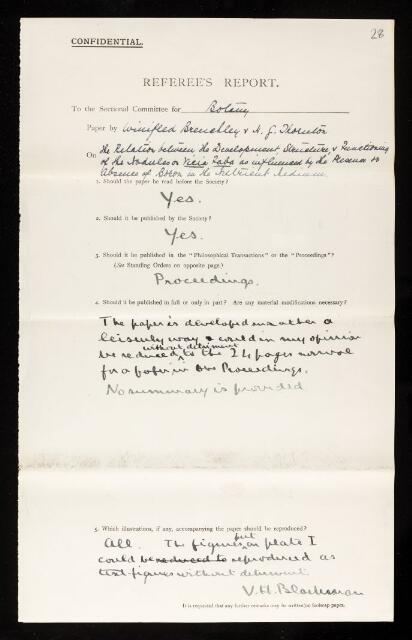 28
CONFIDENTIAL.
REFEREE'S REPORT.
To the Sectional Committee for Botany
Paper by Winifred Brenchley & H. G. Thornton
On the Relation between the Development Structure, & Functioning
of the Nodules on Vicia Faba as influenced by the Presence or
Absence of Boron in the Nutrient Medium
1. Should the paper be read before the Society?
Yes.
2. Should it be published by the Society?
Yes.
3. Should it be published in the "Philosophical Transactions" or the "Proceedings"?
(See Standing Orders on opposite page.)
Proceedings.
4. Should it be published in full or only in part? Are any material modifications necessary?
The paper is developed in rather a
leisurely way & could in my opinion
be reduced, without detriment to the 24 pages normal
for a paper in the Proceedings.
No summary is provided
5. Which illustrations, if any, accompanying the paper should be reproduced?
All. The figures, but on plate I
could be reduced to reproduced as
text-figures without detriment
V. H. Blackman
It is requested that any further remarks may be written on foolscap paper.